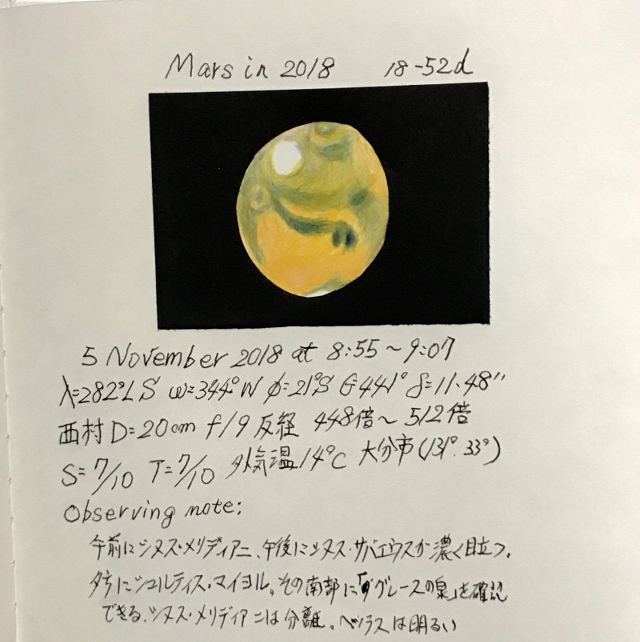 Mars in 2018 18-52d
5 November 2018 at 8:55~9:07
λ=282°LS ω=344°W φ=21°S 441° δ=11.48"
西村 D=20cm f/9 反経 448倍~512倍
S=7/10 T=7/10 外気温14°C 大分市(131°.33°)
Observing note:
午前にシヌス・メリディアニ、午後にシヌス・サバエウスが濃く目立つ。
夕方にシュルティス・マイヨル。その南部に「グレースの泉」を確認
できる。シヌス・メリディアニは分離。ヘラスは明るい